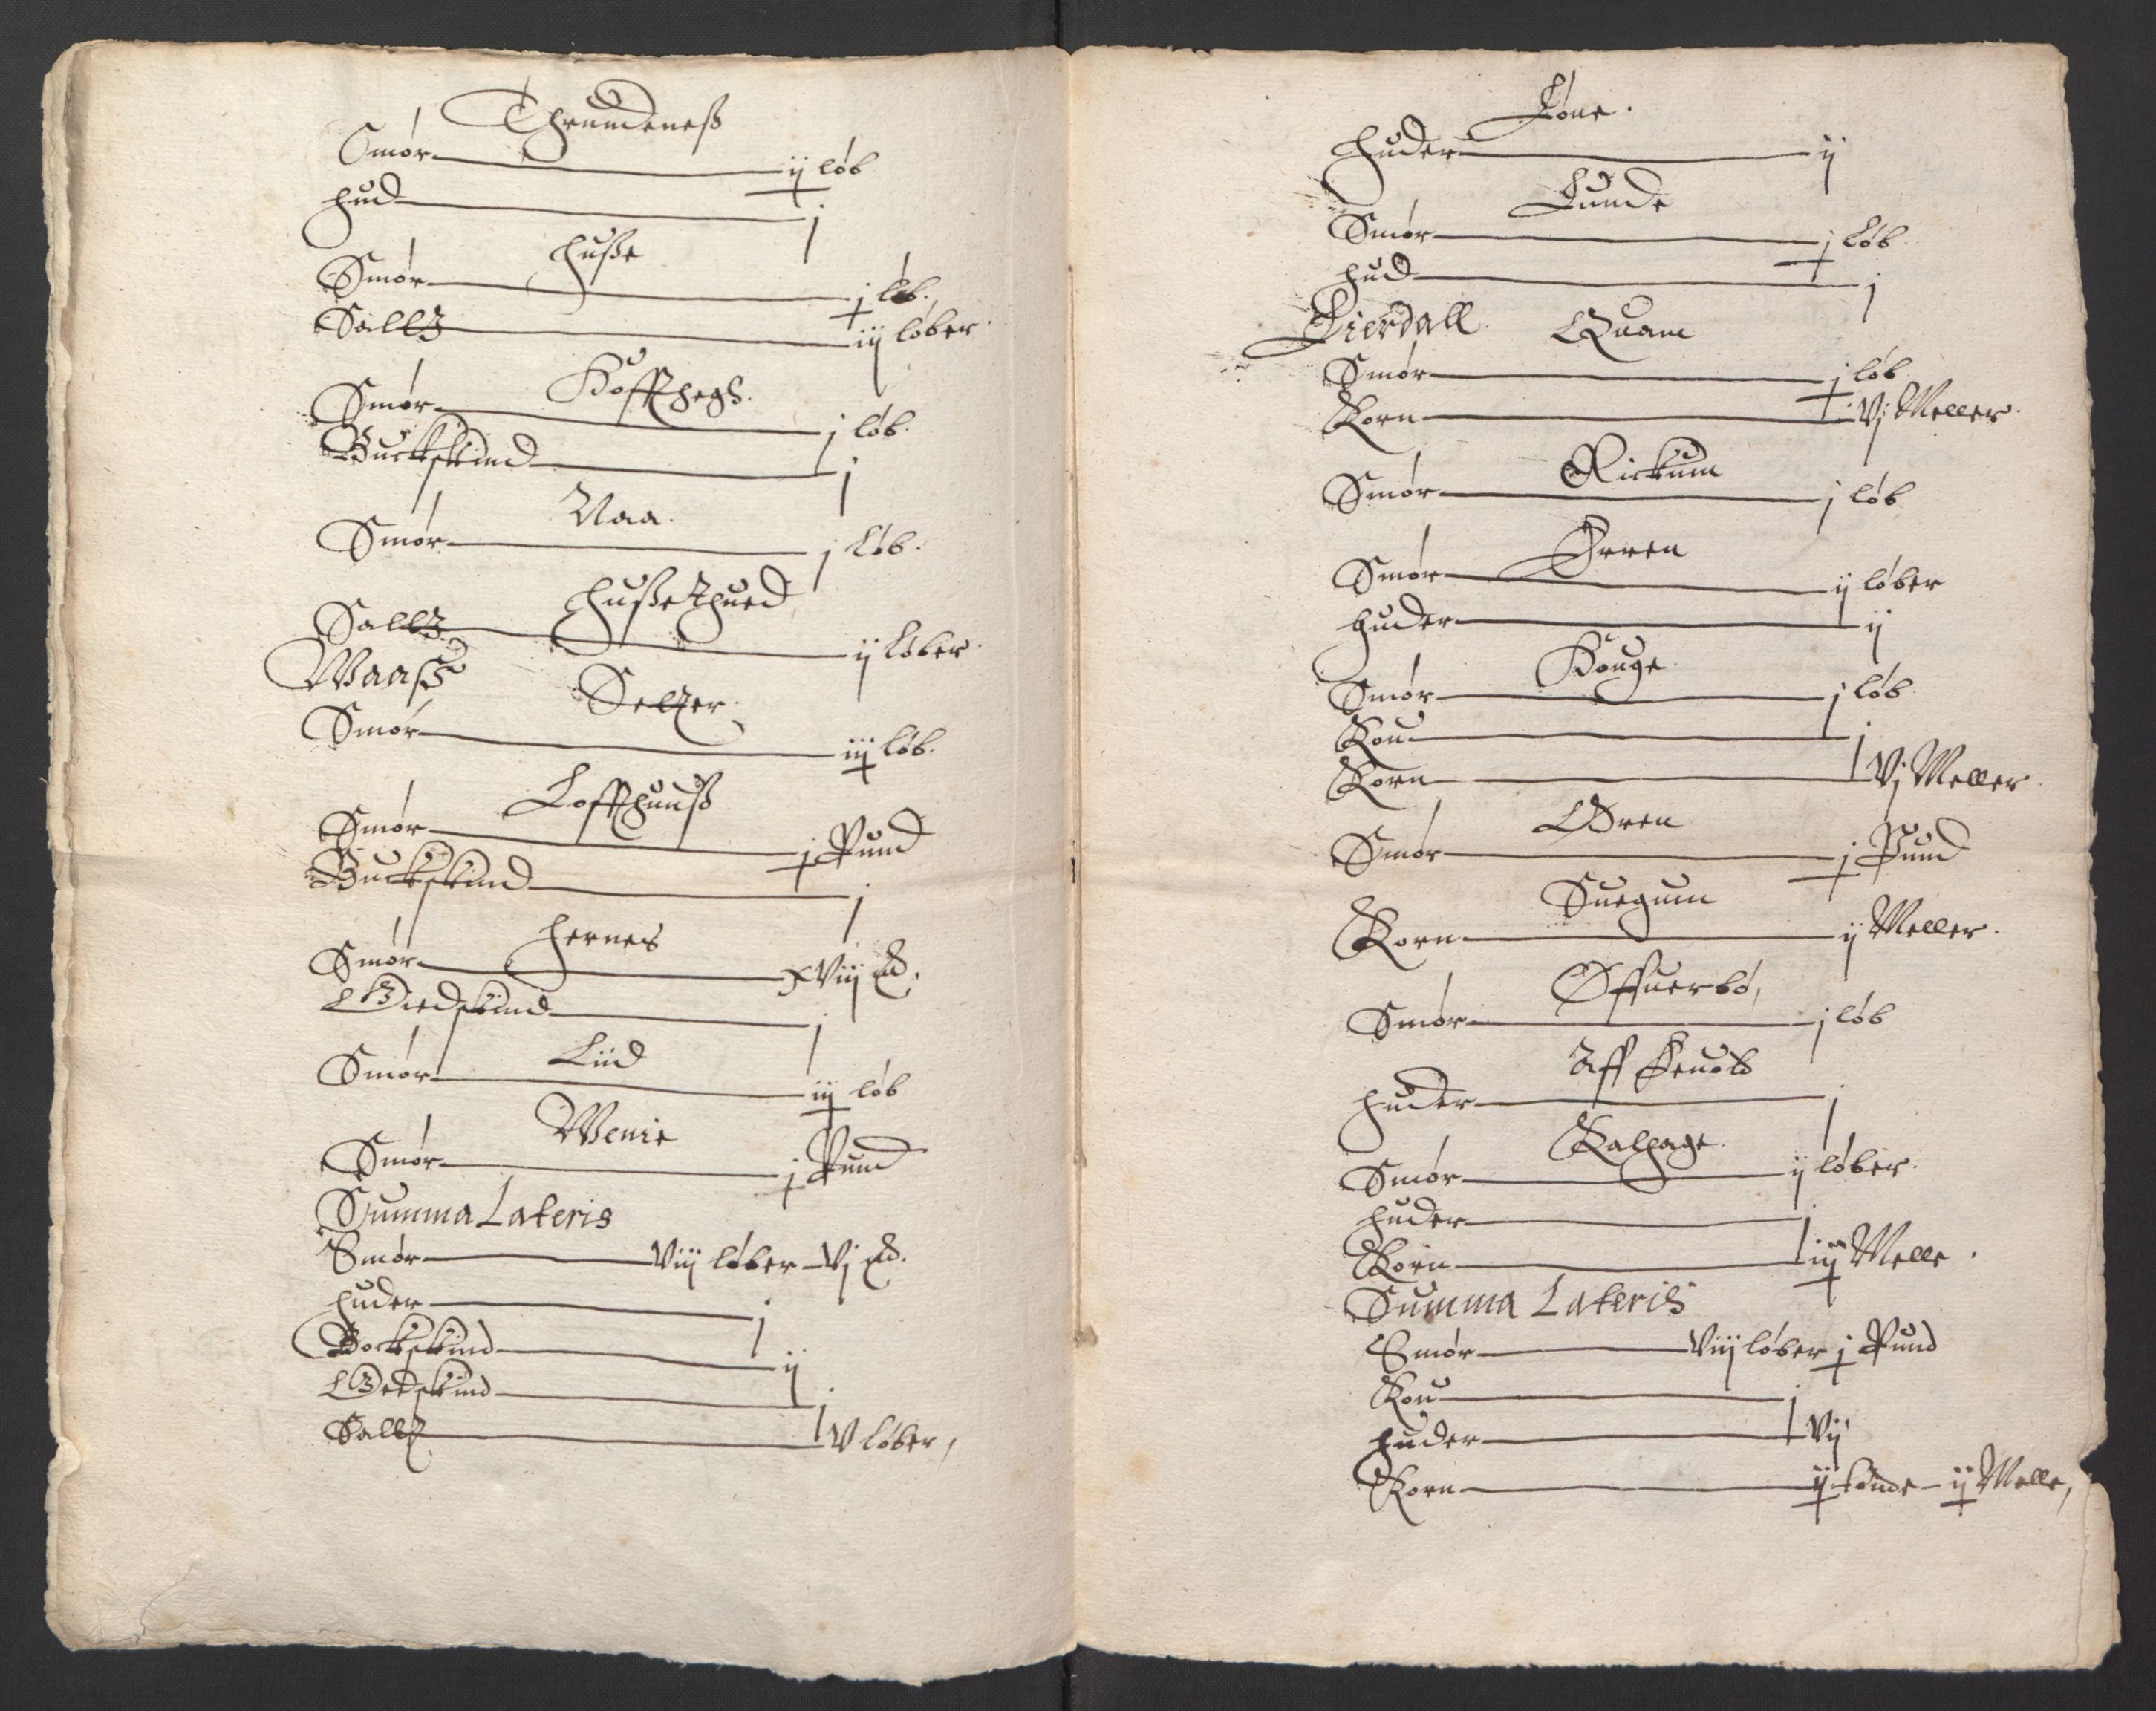 Thrundeneß
Smør ij løb
Hud j
Huße
Smør j løb.
Salltz iij løber.
Koffthegs.
Smør j løb.
Buckskind j
Naa.
Smør j løb.
Hußethued
Salltz ij løber.
Waaß
Seltzer.
Smør iij løb.
Loffthuuß
Smør j Pund
Buckskind j
Hernes
Smør xviij
Giedskind j
Liid
Smør iij løb
Wenie
Smør j Pund
Summa Lateris
Smør viij løber vj
Huder j
Bockskind ij
Gedskind j
Salltz v løber,
Løne.
Huder ij
Lunde
Smør j løb.
Hud j
Dierdall. Quam
Smør j løb
Korn vj Meller.
Rickum
Smør j løb
Ørren
Smør ij løber
Huder ij
Houge.
Smør j løb
Kou j
Korn vj Meller.
Øren
Smør j Pund
Suegum
Korn ij Meller.
Øffuerbø,
Smør j løb
Aff
Huder j
Kalhage.
Smør ij løber.
Huder j
Korn iij Melle.
Summa Lateris
Smør viij løber j Pund
Kou j
Huder vij
Korn ij tønde ij Melle,